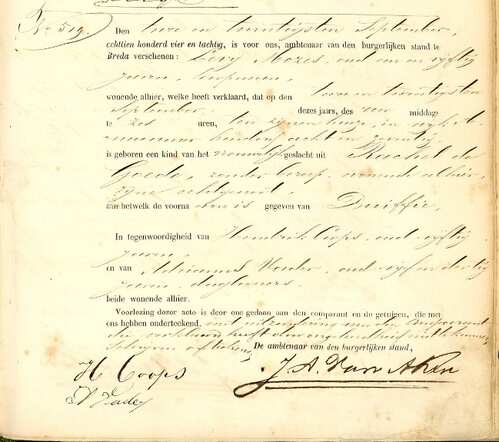 No 519.
Den twee en twintigsten September,
achttien honderd vier en tachtig, is voor ons, ambtenaar van den burgerlijken stand te
Breda verschenen: Levy Mozes, oud een en vijftig
jaren, koopman,
wonende alhier, welke heeft verklaard, dat op den twee en twintigsten
September dezes jaars, des voor middags
te zes uren, ten zijnen huize, in wijk
nummer honderd acht en
is geboren een kind van het vrouwelijk geslacht uit Rachel de
Goede, zonder beroep, wonende alhier,
zijne echtgenoot
aan hetwelk de voornaam is gegeven van Duiffie,
In tegenwoordigheid van Hendrik Coops, oud vijftig
jaren
en van Adrianus, oud vijf en dertig
jaren, dagloners
beide wonende alhier.
Voorlezing dezer acte is door ons gedaan aan den comparant en de getuigen, die met
ons hebben onderteekend, met uitzondering van den Comparant
die verklaard heeft
De ambtenaar van den burgerlijken stand,
H Coops
J. A. Van Aken